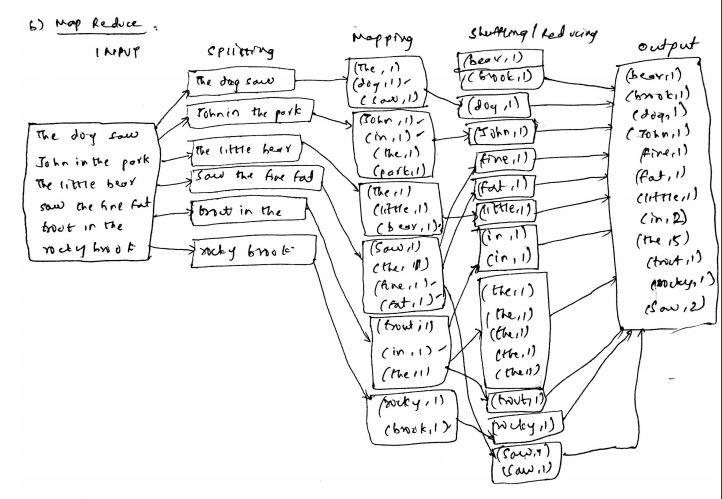 b) Map Reduce :
INPUT
Splitting
Mapping
Shuffling / Reducing
output
The dog saw
John in the park
The little bear
saw the fine fat
trout in the
rocky brook
The dog saw
John in the park
The little bear
Saw the fine fat
trout in the
rocky brook
(The, 1)
(dog, 1)
(saw, 1)
(John, 1)
(in, 1)
(the, 1)
(park, 1)
(The, 1)
(little, 1)
(bear, 1)
(Saw, 1)
(the, 1)
(fine, 1)
(fat, 1)
(trout, 1)
(in, 1)
(the, 1)
(rocky, 1)
(brook, 1)
(bear, 1)
(brook, 1)
(dog, 1)
(John, 1)
(fine, 1)
(fat, 1)
(little, 1)
(in, 1)
(in, 1)
(the, 1)
(the, 1)
(the, 1)
(the, 1)
(the, 1)
(trout, 1)
(rocky, 1)
(Saw, 1)
(Saw, 1)
(bear, 1)
(brook, 1)
(dog, 1)
(John, 1)
(fine, 1)
(fat, 1)
(little, 1)
(in, 2)
(the, 5)
(trout, 1)
(rocky, 1)
(Saw, 2)